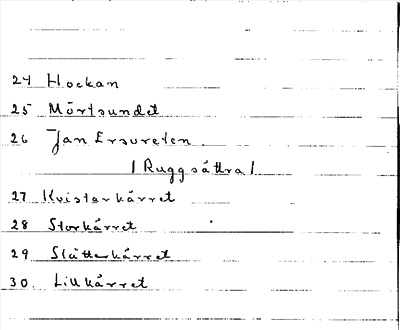 24 Hockan
25 Mörtsundet
26 Jan Ersvreten.
/Ruggsättra/
27 Kvisterkärret
28 Storkärret
29 Slätterkärret
30. Lillkärret